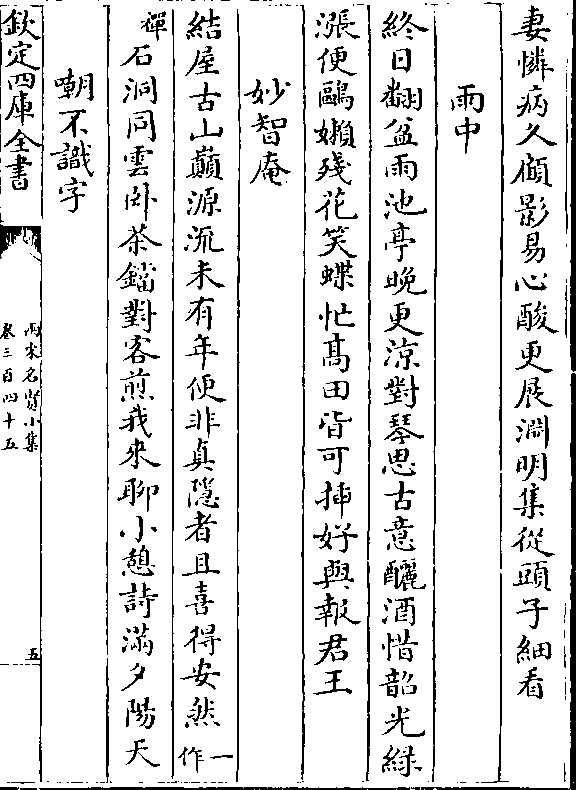 妻憐病久顔影易心酸更展淵明集從頭子細看
雨中
終日翻盆雨池亭晚更涼對琴思古意釃酒惜韶光綠
漲便鷗嬾殘花笑蝶忙髙田皆可揷好與報君王
妙智庵
結屋古山巔源流未有年便非真隱者且喜得安然一作
禪石洞同雲卧茶鐺對客煎我來聊小憩詩滿夕陽天
嘲不識字
欽定四庫全書
兩宋名賢小集
卷三百四十五
五